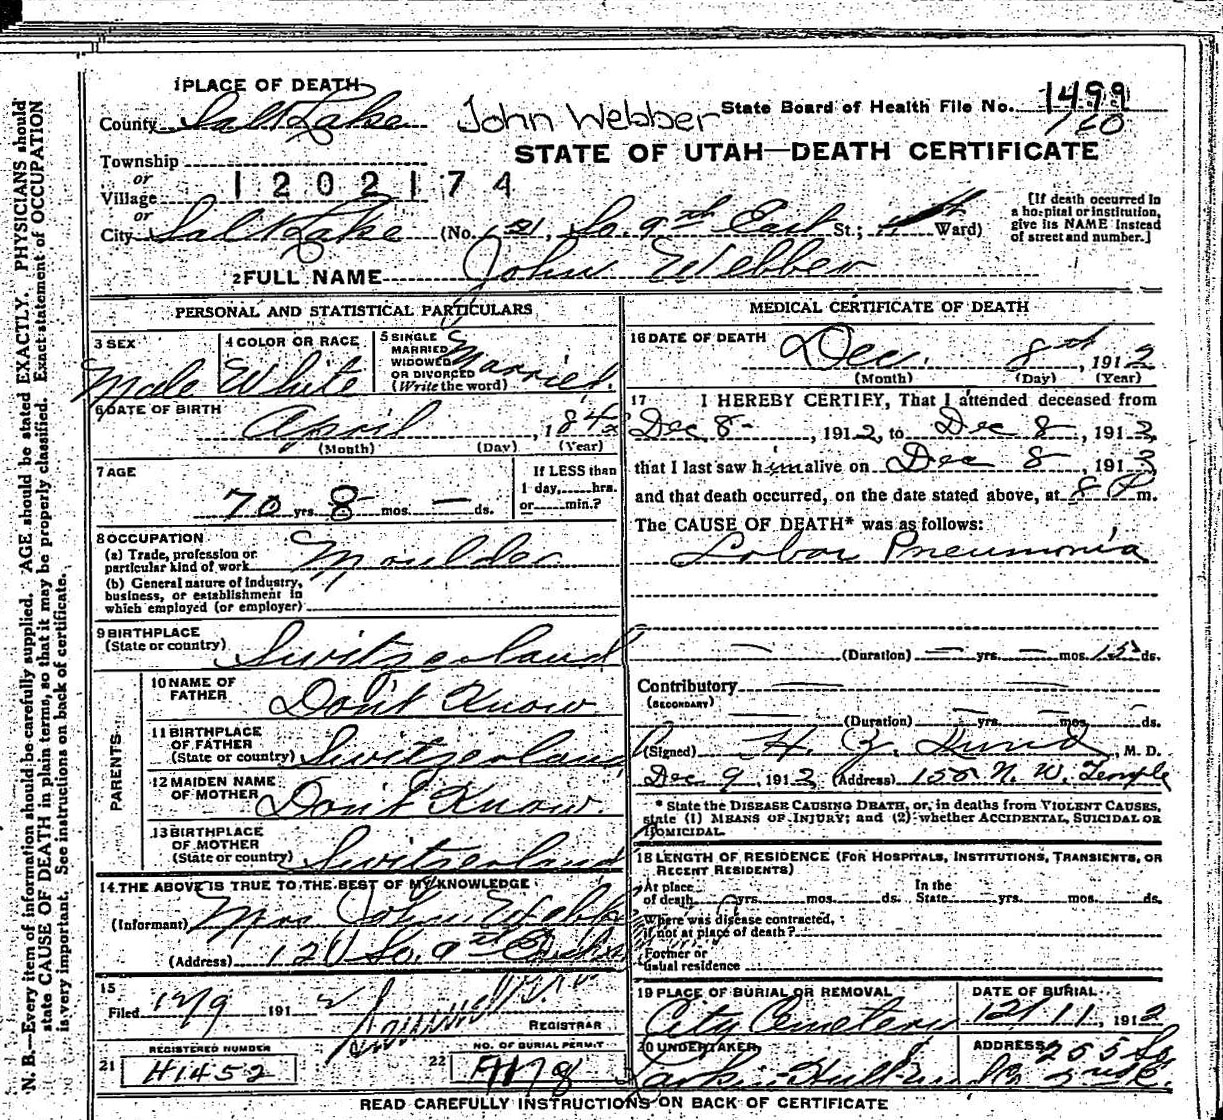 1 PLACE OF DEATH
County Salt Lake
John Webber
State Board of Health File No. 1499
120
STATE OF UTAH—DEATH CERTIFICATE
Township
or
Village
1202174
or
City Salt Lake (No. So. 9th East St.; Ward)
[If death occurred in a hospital or institution, give its NAME instead of street and number.]
2 FULL NAME John Webber
PERSONAL AND STATISTICAL PARTICULARS
3 SEX Male
4 COLOR OR RACE White
5 SINGLE MARRIED WIDOWED OR DIVORCED (Write the word) Married
6 DATE OF BIRTH April, 1842
(Month) (Day) (Year)
7 AGE 70 yrs. 8 mos. — ds.
If LESS than 1 day, hrs. or min.?
8 OCCUPATION
(a) Trade, profession or particular kind of work Moulder
(b) General nature of industry, business, or establishment in which employed (or employer)
9 BIRTHPLACE (State or country) Switzerland
PARENTS
10 NAME OF FATHER Don't Know
11 BIRTHPLACE OF FATHER (State or country) Switzerland
12 MAIDEN NAME OF MOTHER Don't Know.
13 BIRTHPLACE OF MOTHER (State or country) Switzerland
14 THE ABOVE IS TRUE TO THE BEST OF MY KNOWLEDGE
(Informant) Mrs John Webber
(Address) So. 9th
15
Filed 12/9 1912
REGISTRAR
21 REGISTERED NUMBER H1452
22 NO. OF BURIAL PERMIT
MEDICAL CERTIFICATE OF DEATH
16 DATE OF DEATH Dec. 8th, 1912
(Month) (Day) (Year)
17 I HEREBY CERTIFY, That I attended deceased from
Dec 8-, 1912, to Dec 8, 1912,
that I last saw him alive on Dec 8, 1912
and that death occurred, on the date stated above, at 8 P m.
The CAUSE OF DEATH* was as follows:
Lobar Pneumonia
(Duration) — yrs. — mos. 15 ds.
Contributory
(SECONDARY)
(Duration) yrs. mos. ds.
(Signed) H. Z. Lund, M. D.
Dec 9, 1912 (Address) 155 N. W. Temple
* State the DISEASE CAUSING DEATH, or, in deaths from VIOLENT CAUSES, state (1) MEANS OF INJURY; and (2) whether ACCIDENTAL, SUICIDAL OR HOMICIDAL.
18 LENGTH OF RESIDENCE (FOR HOSPITALS, INSTITUTIONS, TRANSIENTS, OR RECENT RESIDENTS)
At place of death yrs. mos. ds. In the State yrs. mos. ds.
Where was disease contracted, if not at place of death?
Former or usual residence
19 PLACE OF BURIAL OR REMOVAL City Cemetery
DATE OF BURIAL 12/11, 1912
20 UNDERTAKER
ADDRESS 255 So
READ CAREFULLY INSTRUCTIONS ON BACK OF CERTIFICATE
N. B.—Every item of information should be carefully supplied. AGE should be stated EXACTLY. PHYSICIANS should
state CAUSE OF DEATH in plain terms, so that it may be properly classified. Exact statement of OCCUPATION
is very important. See instructions on back of certificate.